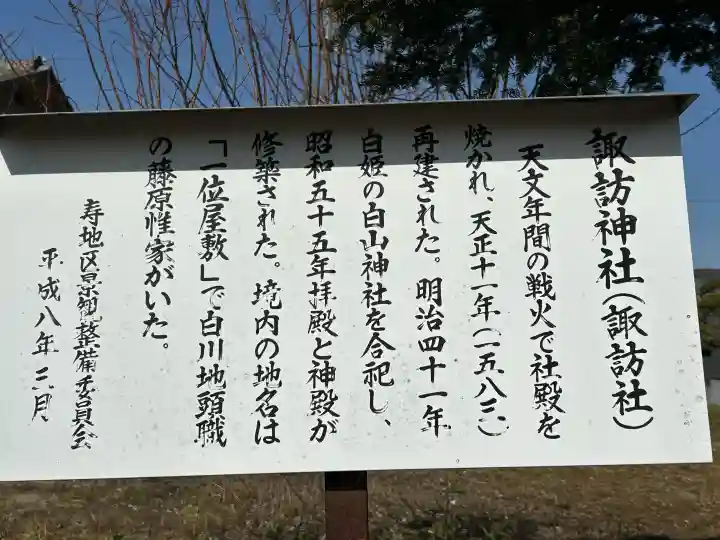 諏訪神社(諏訪社)
天文年間の戦火で社殿を
焼かれ、天正十一年(一五八三)
再建された。明治四十一年
白姫の白山神社を合祀し、
昭和五十五年拝殿と神殿が
修築された。境内の地名は
「一位屋敷」で白川地頭職
の藤原惟家がいた。
寿地区景観整備委員会
平成八年三月